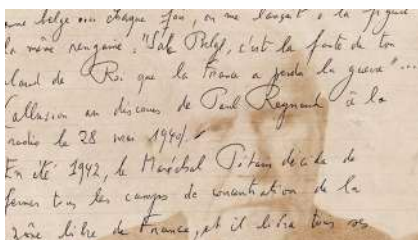 une belge ... chaque jour, on me lançait à la figure
la même rengaine, "Sale Belge, c'est la faute de ton
de Roi que la France a perdu la guerre"...
(allusion au discours de Paul Reynaud à la
radio le 28 mai 1940).
En été 1942, le Maréchal Pétain décida de
fermer tous les camps de concentration de la
zône libre de France, et il libéra tous ses